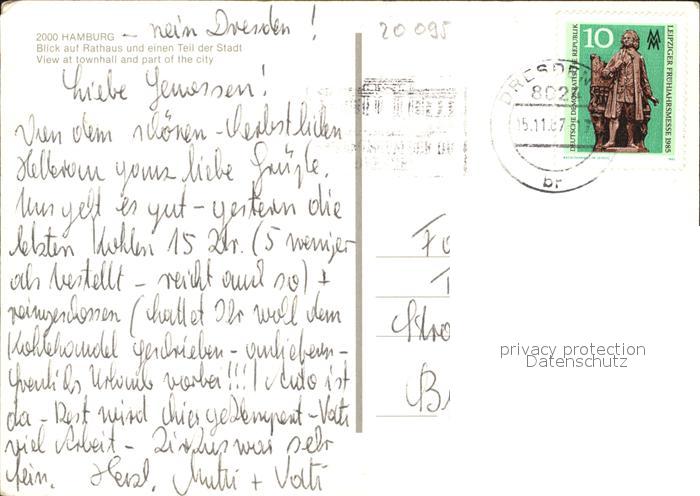 2000 HAMBURG – nein Dresden!
Blick auf Rathaus und einen Teil der Stadt
View at townhall and part of the city
Liebe Genossen!
Von dem schönen – herbstlichen
Hellerau ganz liebe Grüße.
Uns geht es gut – gestern die
letzten Kohlen 15 Ztr. (5 weniger
als bestellt – reicht auch so) +
reingeschossen (hattet Ihr wohl dem
Kohlehandel geschrieben – anliefern –
Urlaub vorbei!!!) Auto ist
da – Rest wird hier geklempert – Vati
viel Arbeit – Zirkus war sehr
fein. Herzl. Mutti + Vati
20 095
DRESDEN
8021
15.11.87
br
10
DEUTSCHE DEMOKRATISCHE REPUBLIK
LEIPZIGER FRÜHJAHRSMESSE 1985
privacy protection
Datenschutz